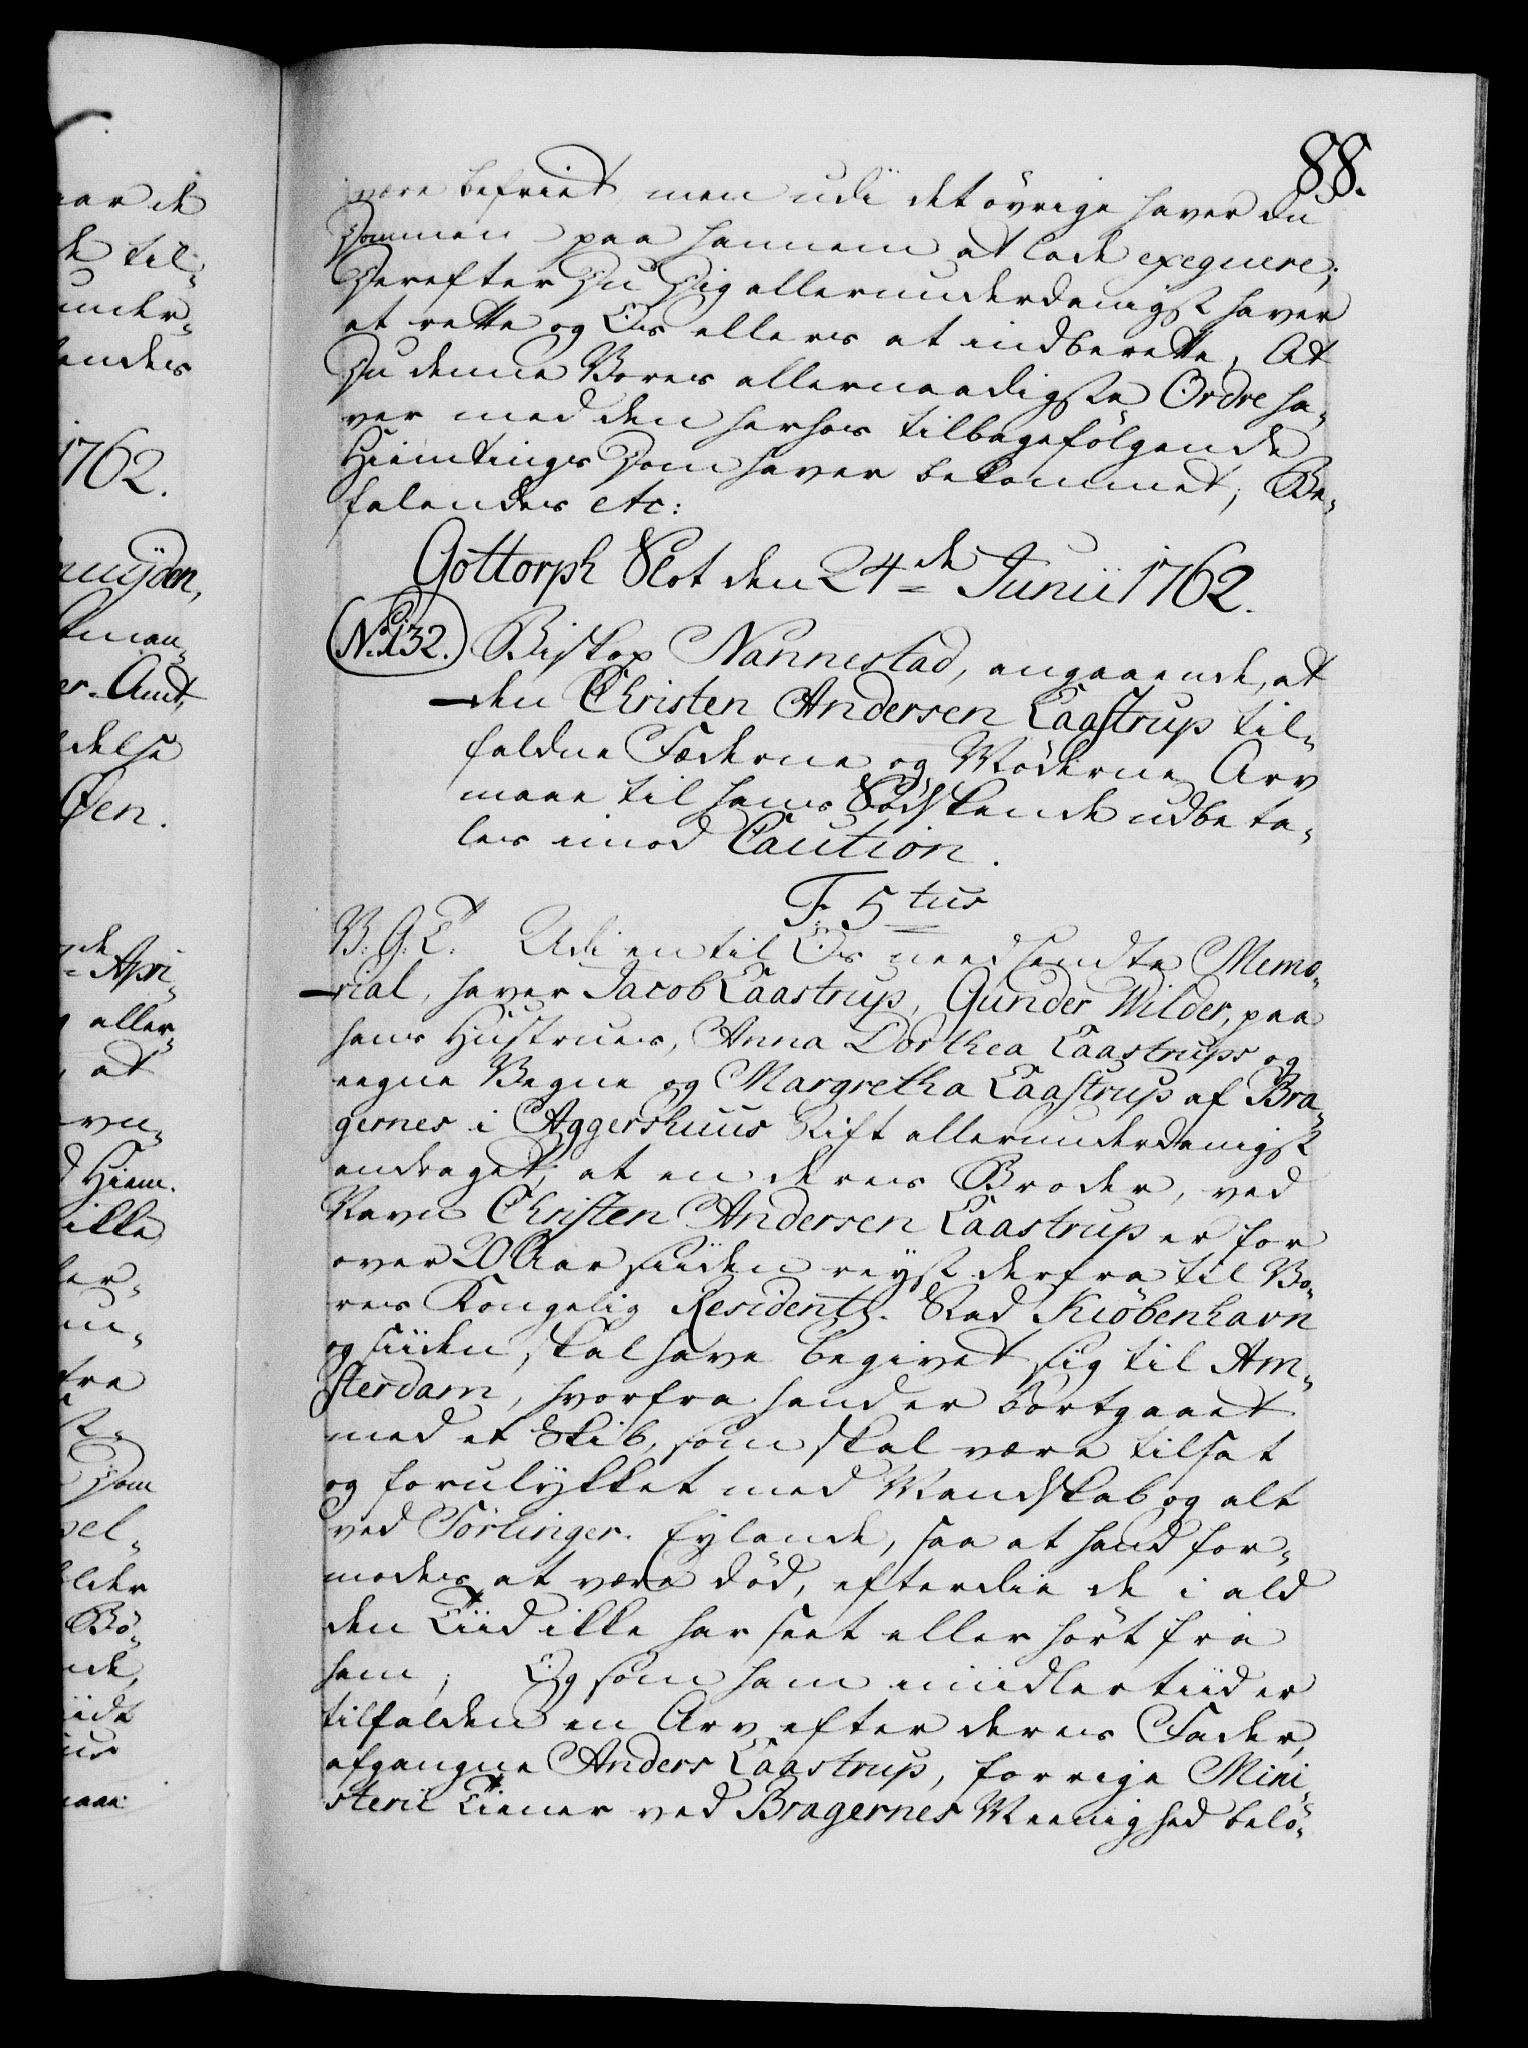 88.
være befriet men udi det övrige haver du
Dommen paa hannem at lade exequere;
Derefter Du Dig allerunderdanigst haver
at rette og Os ellers at indberette, At
Du denne Vores allernaadigste Ordre ha-
ver med den herhos tilbagefölgende
Hiemtings Dom haver bekommet; Be-
falendes etc:
Gottorph Slot den 24de Junii 1762.
No. 132. Biskop Nannestad, angaaende, at
den Christen Andersen Laastrup til-
faldne Fæderne og Möderne Arv
maae til hans Södskende udbeta-
les imod Caution.
F. 5tus
V: G: T. Udi en til Os needsendte Memo-
rial, haver Jacob Laastrup, Gunder Wilder, paa
hans Hustrues, Anna Dorthea Laastrups og
eegne Vegne og Margretha Laastrup af Bra-
gernes i Aggershuus Stift allerunderdanigst
andraget, at en deres Broder, ved
Navn Christen Andersen Laastrup er for
over 20 Aar siiden reyst derfra til Vo-
res Kongelig Residentz-Stad Kiöbenhavn
og siiden skal have begivet sig til Am-
sterdam, hvorfra hand er bortgaaet
med et Skib, som skal være tilsat
og forulykket med Mandskab og alt
ved Sörlinger-Eylande, saa at hand for-
modes at være död, efterdie de i ald
den Tiid ikke har seet eller hört fra
ham; Og som ham imidlertiid er
tilfalden en Arv efter deres Fader,
afgangne Anders Laastrup, forrige Mini-
sterii Tiener ved Bragernes Meenighed belö-